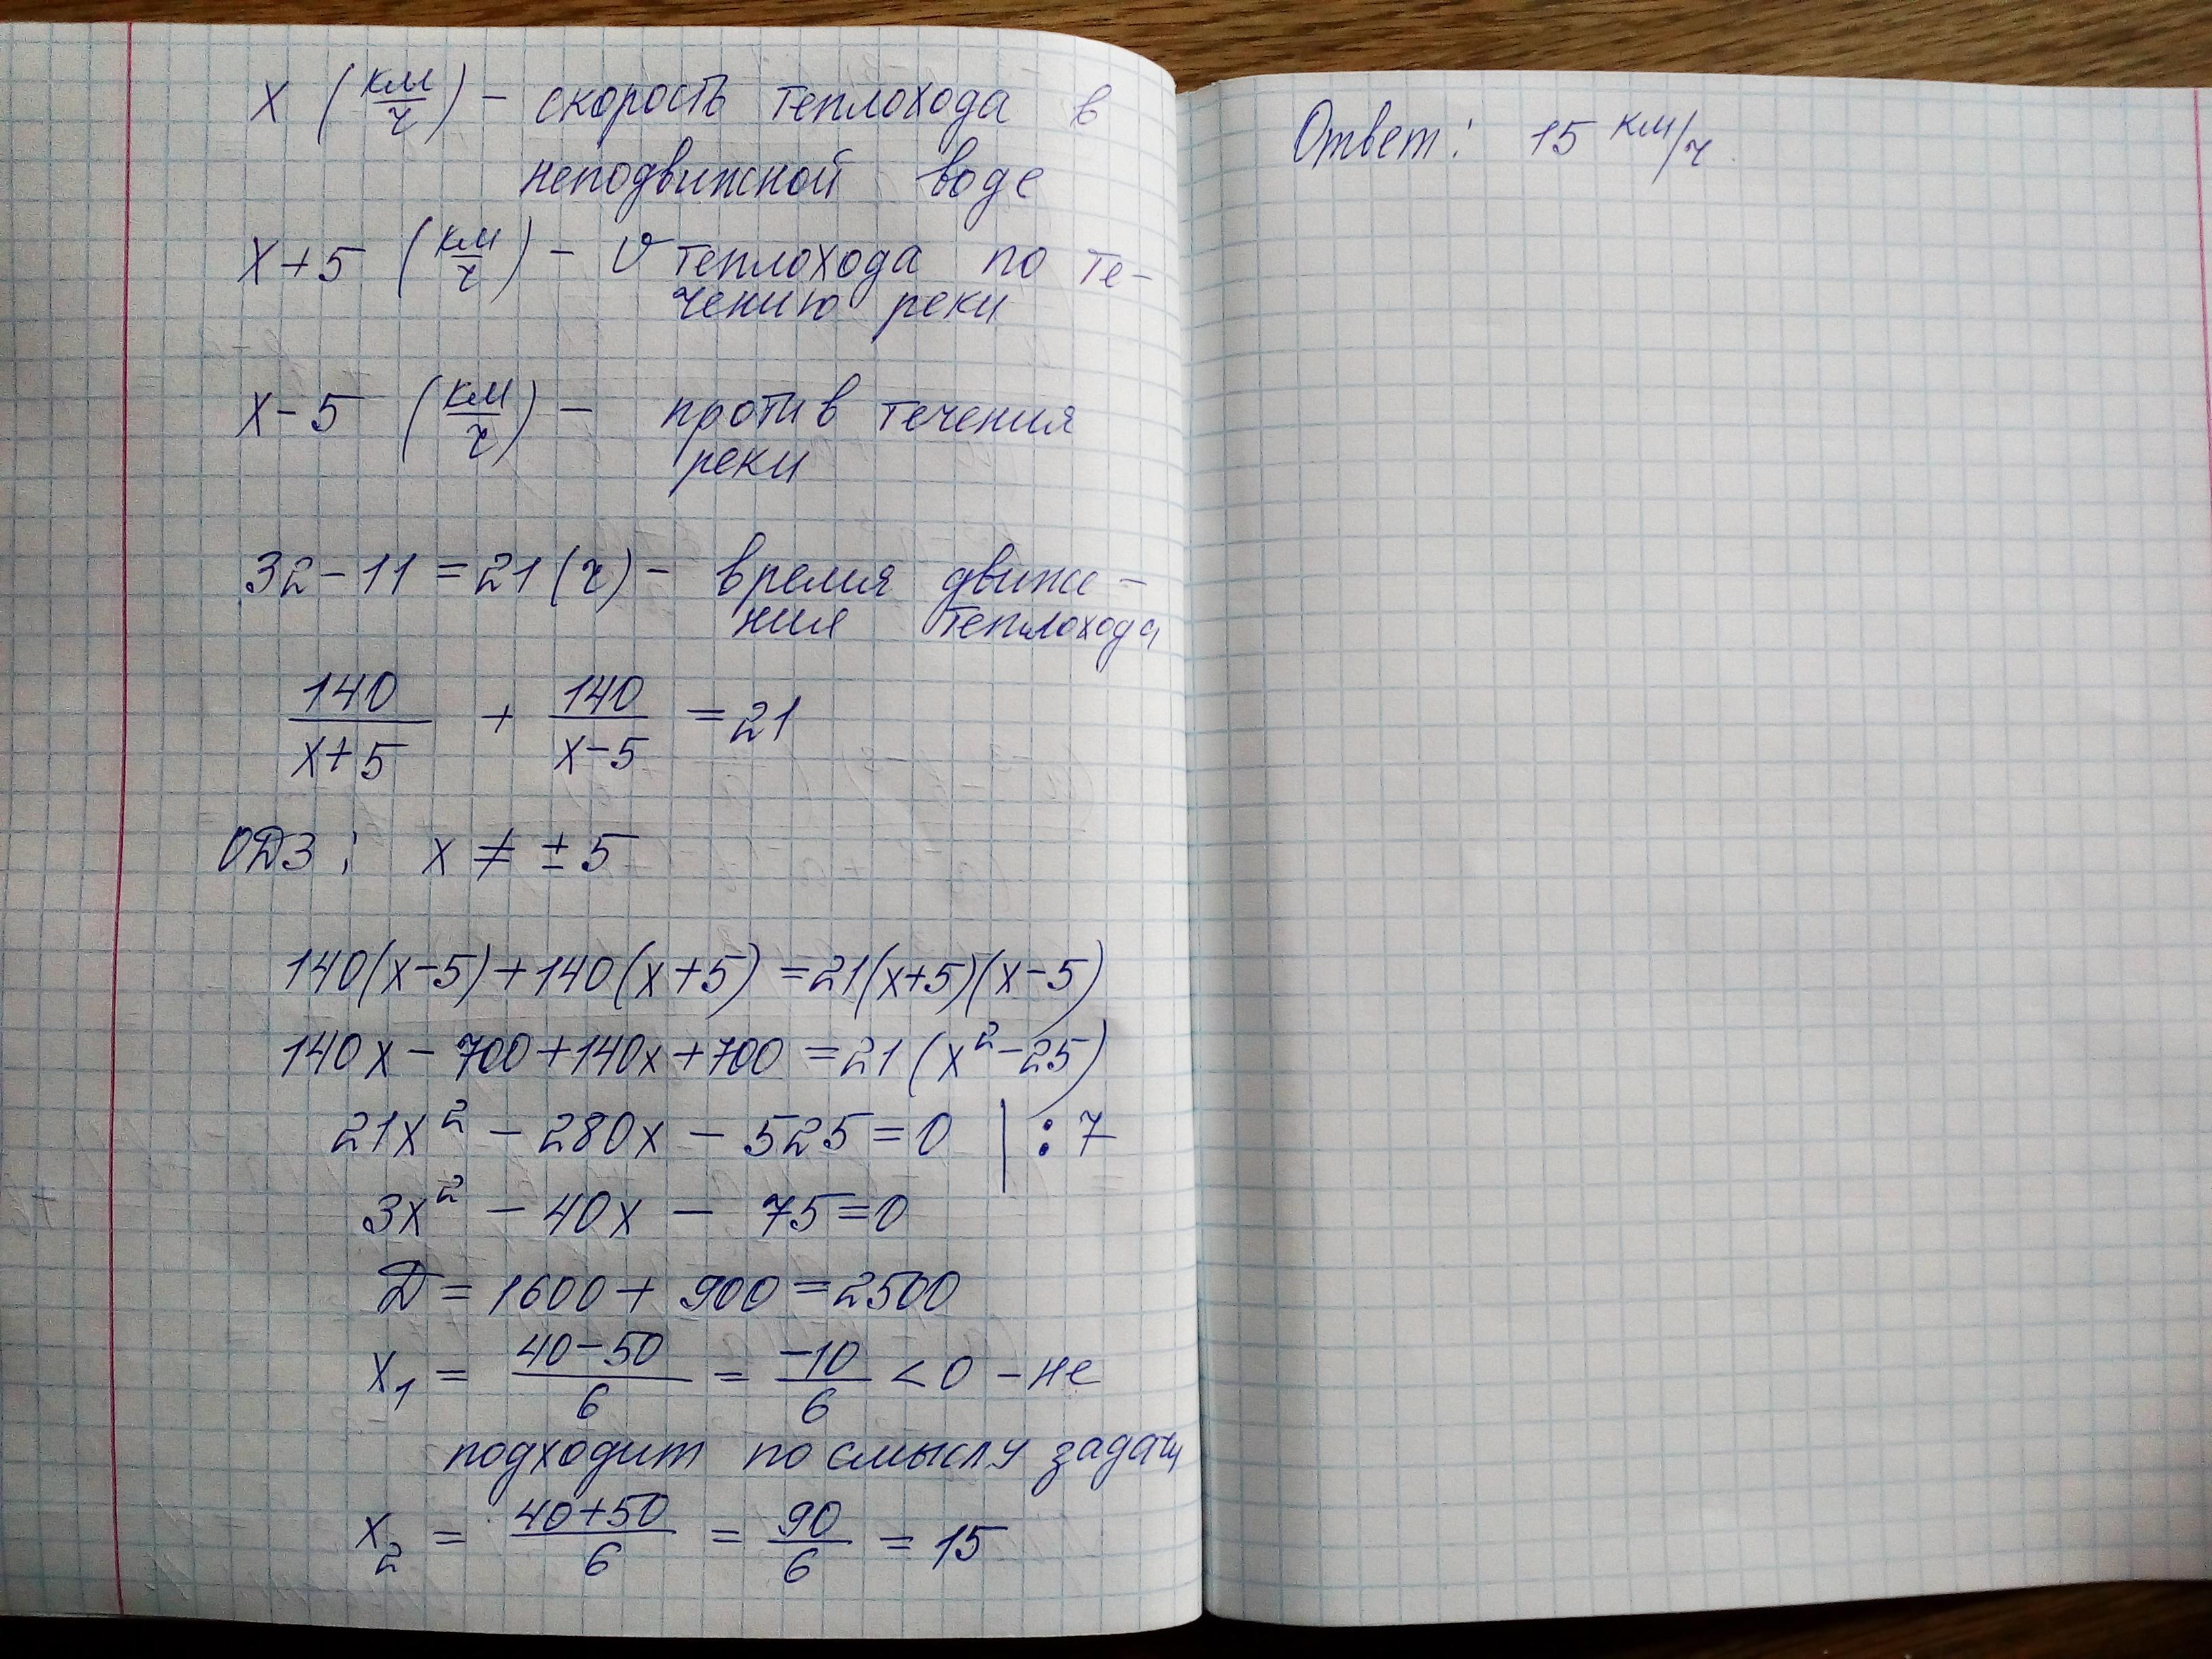 x (км/ч) – скорость теплохода в
неподвижной воде
x+5 (км/ч) – v теплохода по те-
чению реки
x-5 (км/ч) – против течения
реки
32-11=21(ч) – время движе-
ния теплохода
140/(x+5) + 140/(x-5) = 21
ОДЗ: x ≠ ±5
140(x-5)+140(x+5)=21(x+5)(x-5)
140x-700+140x+700=21(x²-25)
21x²-280x-525=0 |:7
3x²-40x-75=0
D=1600+900=2500
x₁ = (40-50)/6 = -10/6 <0 – не
подходит по смыслу задачи
x₂ = (40+50)/6 = 90/6 = 15
Ответ: 15 км/ч.